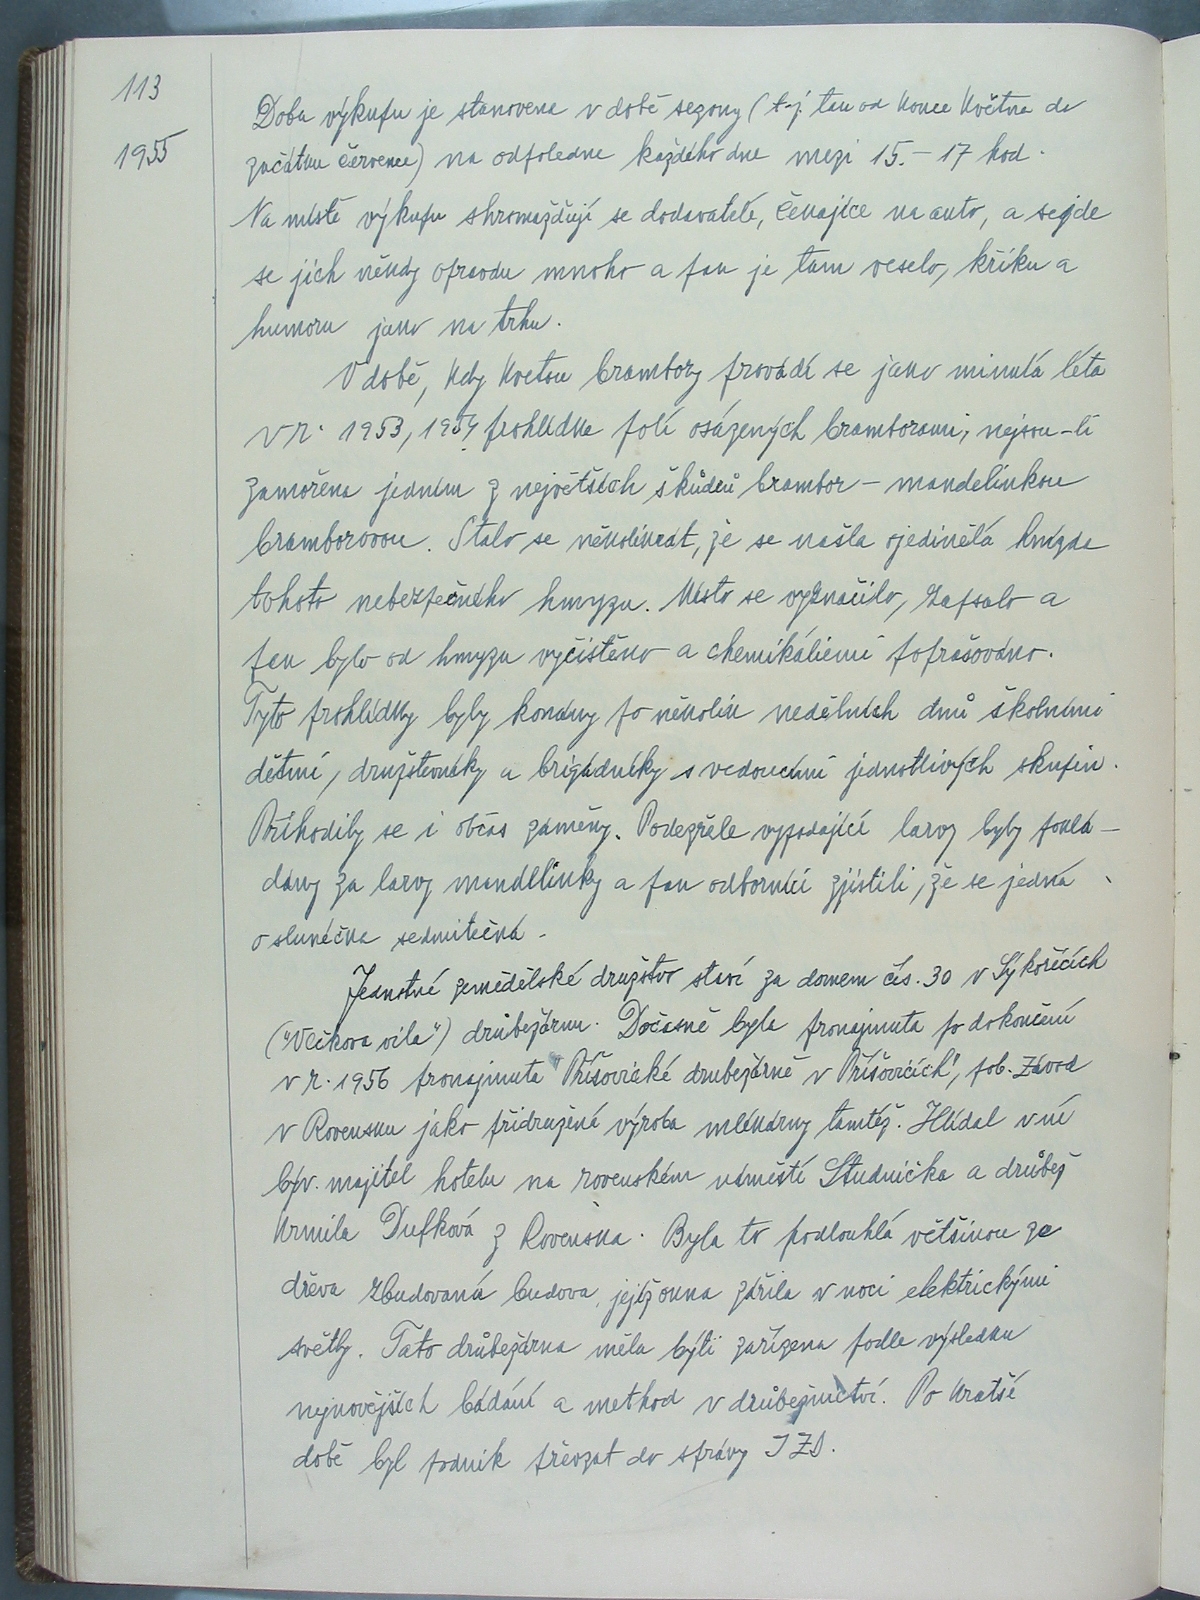 113
1955
Doba výkupu je stanovena v době sezony (t.j. tak od konce května do
začátku července) na odpoledne každého dne mezi 15.-17 hod.
Na místě výkupu shromažďují se dodavatelé, čekajíce na auto, a sejde
se jich někdy opravdu mnoho a pak je tam veselo, křiku a
humoru jako na trhu.
V době, kdy kvetou brambory provádí se jako minulá léta
v r. 1953, 1954 prohlídka polí osázených bramborami, nejsou-li
zamořena jedním z největších škůdců brambor - mandelinkou
bramborovou. Stalo se několikrát, že se našla ojedinělá hnízda
tohoto nebezpečného hmyzu. Místo se vyznačilo, zapsalo a
pak bylo od hmyzu vyčištěno a chemikáliemi poprašováno.
Tyto prohlídky byly konány po několik nedělních dnů školními
dětmi, družstevníky a brigádníky s vedoucími jednotlivých skupin.
Přihodily se i občas záměny. Podezřele vypadající larvy byly poklá-
dány za larvy mandelinky a pak odborníci zjistili, že se jedná
o slunéčka sedmitečná.
Jednotné zemědělské družstvo staví za domem čís. 30 v Sýkořicích
("Vlčkova vila") drůbežárnu. Dočasně byla pronajmuta po dokončení
v r. 1956 pronajmuta "Příšovické drubežárně v Příšovicích", pob. závod
v Rovensku jako přidružená výroba mlékárny tamtéž. Hlídal v ní
býv. majitel hotelu na rovenském náměstí Studnička a drůbež
krmila Dufková z Rovenska. Byla to podlouhlá většinou ze
dřeva zbudovaná budova, jejíž okna zářila v noci elektrickými
světly. Tato drůbežárna měla býti zařízena podle výsledku
nejnovějších bádání a method v drůbežnictví. Po kratší
době byl podnik převzat do správy JZD.